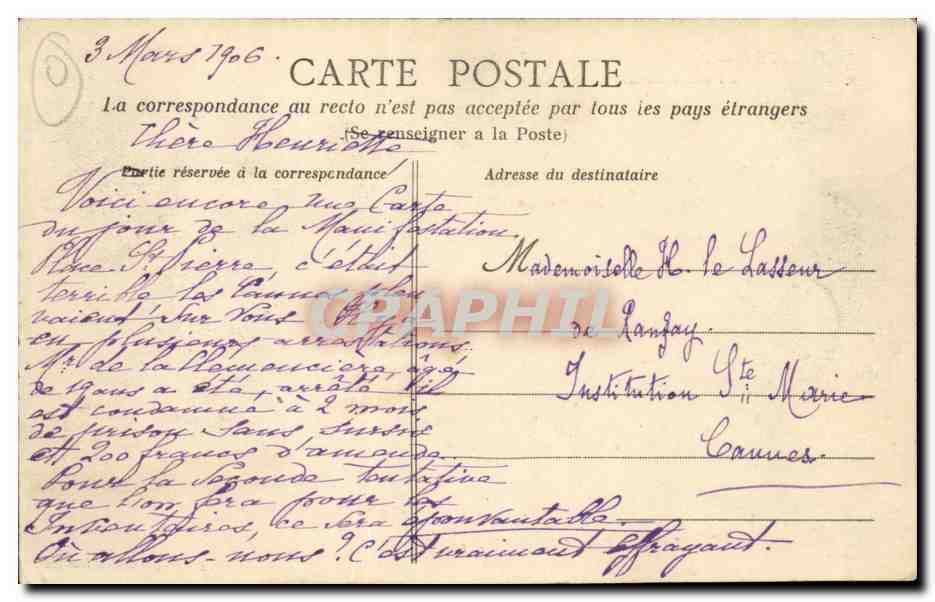 3 Mars 1906.
CARTE POSTALE
La correspondance au recto n'est pas acceptée par tous les pays étrangers
(Se renseigner a la Poste)
Chère Henriette
Partie réservée à la correspondance
Voici encore une Carte
du jour de la Manifestation
Place St Pierre, c'était
terrible les Cannes pleu
vaient sur vous
en plusieurs arrestations.
Mr de la Clemencière, âgé
de 19 ans a été, arrêté, il
est condamné à 2 mois
de prison sans sursis
et 200 francs d'amende.
Pour la Seconde tentative
que l'on fera pour les
Inventaires, ce sera épouvantable
Où allons-nous? C'est vraiment effrayant.
Adresse du destinataire
Mademoiselle H. le Lasseur
de Ranzay.
Institution Ste Marie
Cannes.
CPAPHIL